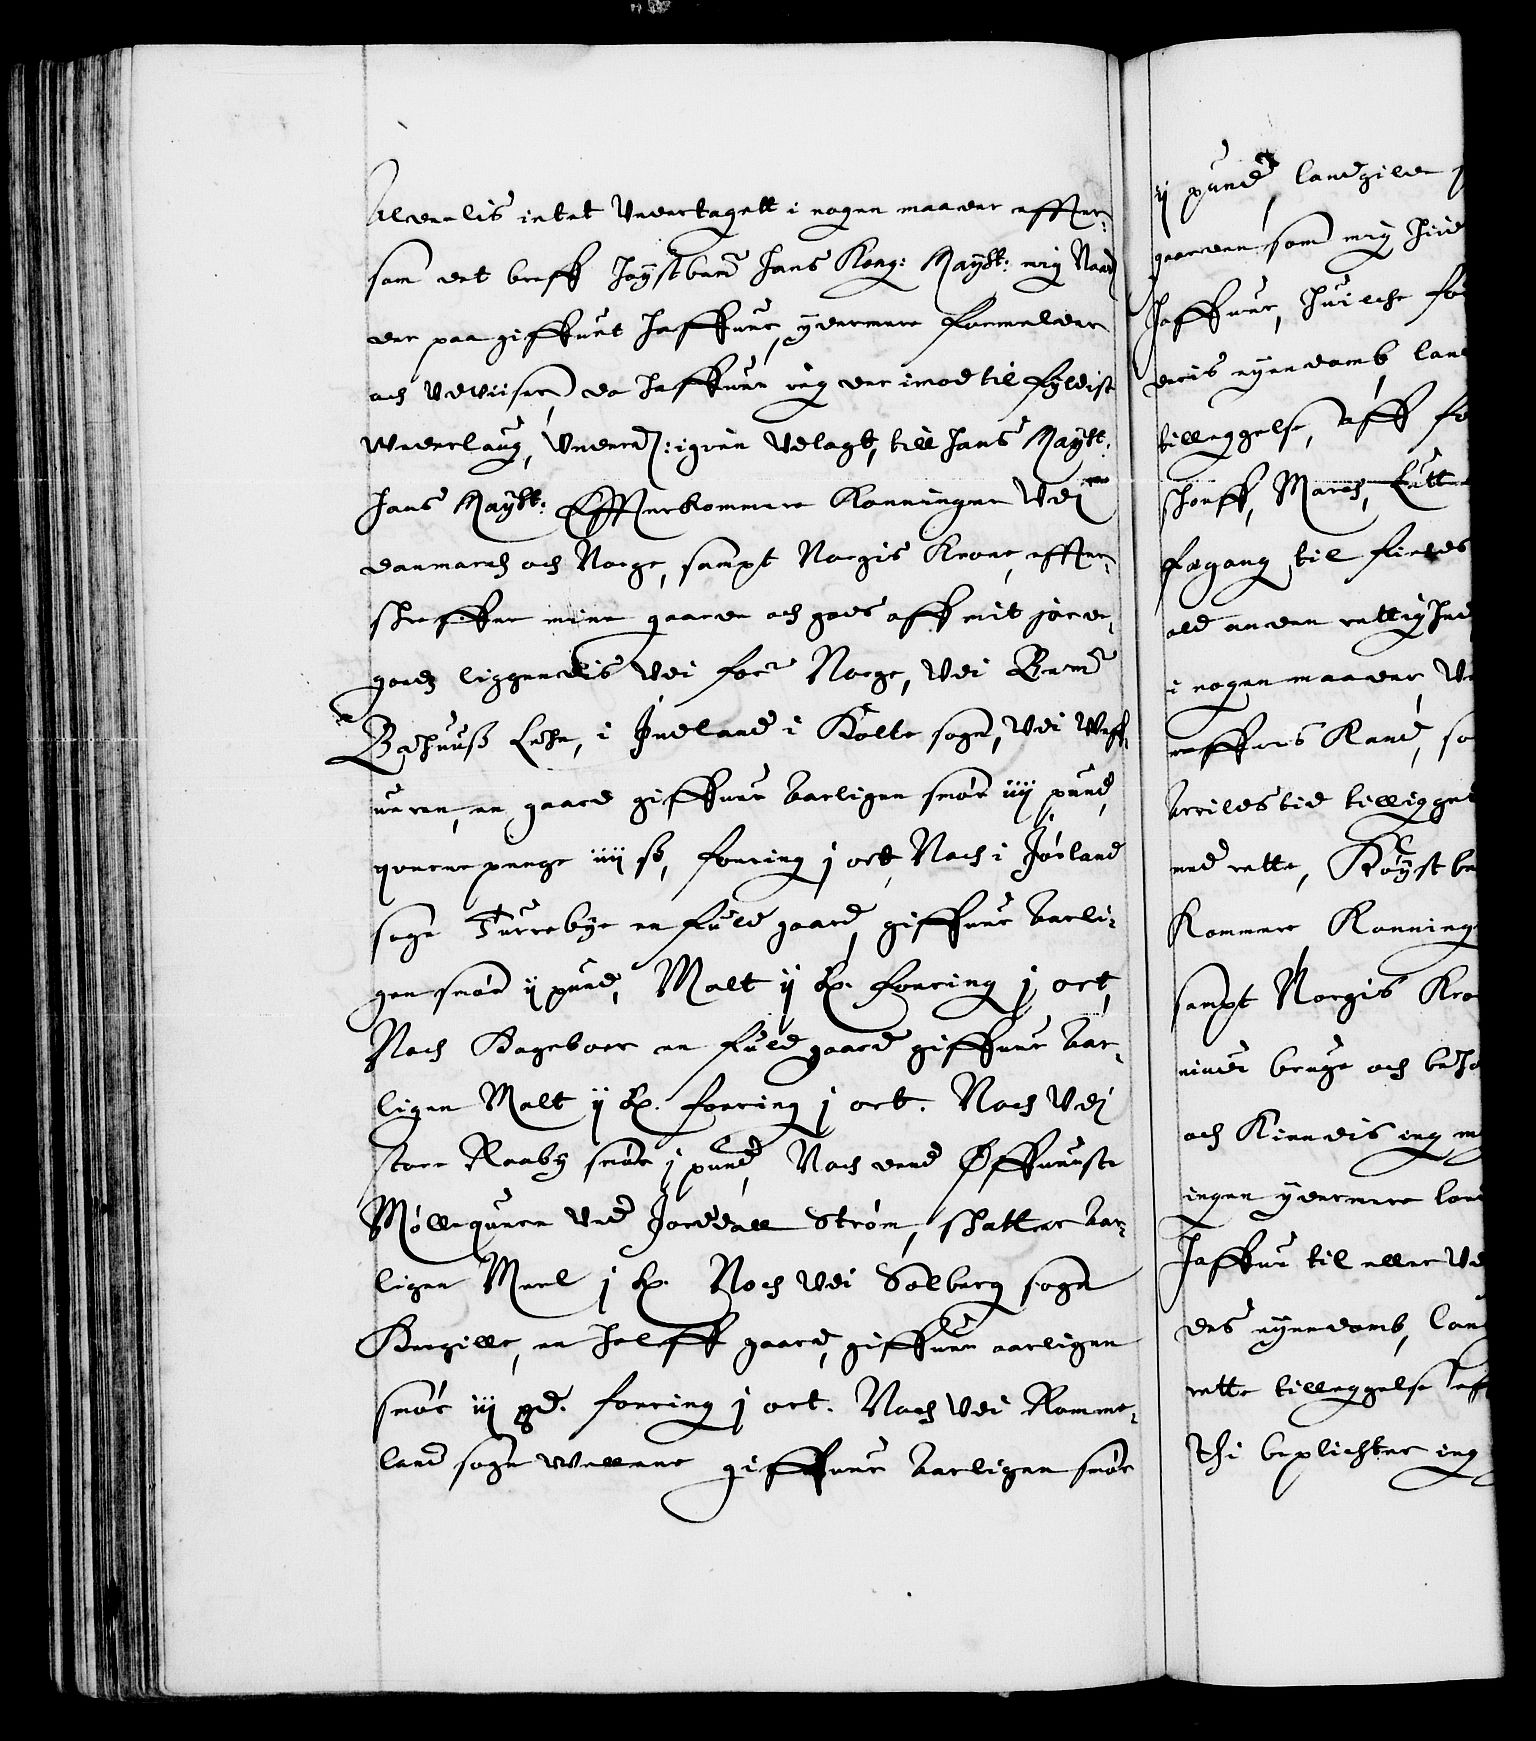 Aldelis intet Undertagett i nogen maader effter,
som det breff høystbem.te Hans Kong: Maytt: mig Naad
der paa giffuet haffuer, ydermere formelder
och Udviiser, da haffuer ieg der imod til fyldist
wederlaug, Under.: igien Udlagt, till Hans Maytt:
Hans Maytt: Effterkommere Konninger Udj
danmarch och Norge, sampt Norgis Krone, effter,
schreffne mine gaarde och gods aff mit jorde,
godz liggendis Udi for.ne Norge, Udi Bem.te
Bahuuß Lehn, i Indland i Kolte sogn, Udi
en gaard giffuer Aarligen smør iiij pund,
penge iiij sk, fouring j ort, Noch i Jørland
sogn Turrebye en fuld gaard, giffuer Aarli,
gen smør ij pund, Malt ij Lp. fouring j ort,
Noch Bageboer en fuld gaard giffuer Aar,
ligen Malt ij Lp. fouring j ort. Noch Udj
store Raaby smør j pund, Noch dend Øffuerste
Møllequern Ued Jordall Strøm, schatter Aar,
ligen Meel j Lp. Noch Udi Solberg sogn
Bregille, en halff gaard, giffuer aarligen
smør iij pd. fouring j ort. Noch Udi Romme,
land sogn giffuer Aarligen smør
ij pund, landgilde
gaarden som mig
haffuer, huilche
deris eyendomb,
tilleggelse, aff
schouff, March,
fægang, til
ald anden rettighed
i nogen maader,
Kand, so
Arrildstid tilligget
med rette, Høyst be
Kommere Konning
sampt Norgis Kro
niude bruge och beho
och Kiendis ieg m
ingen ydermere
haffue til eller Ud
des eyendomb,
rette tilleggelse
Thi beplichter ieg